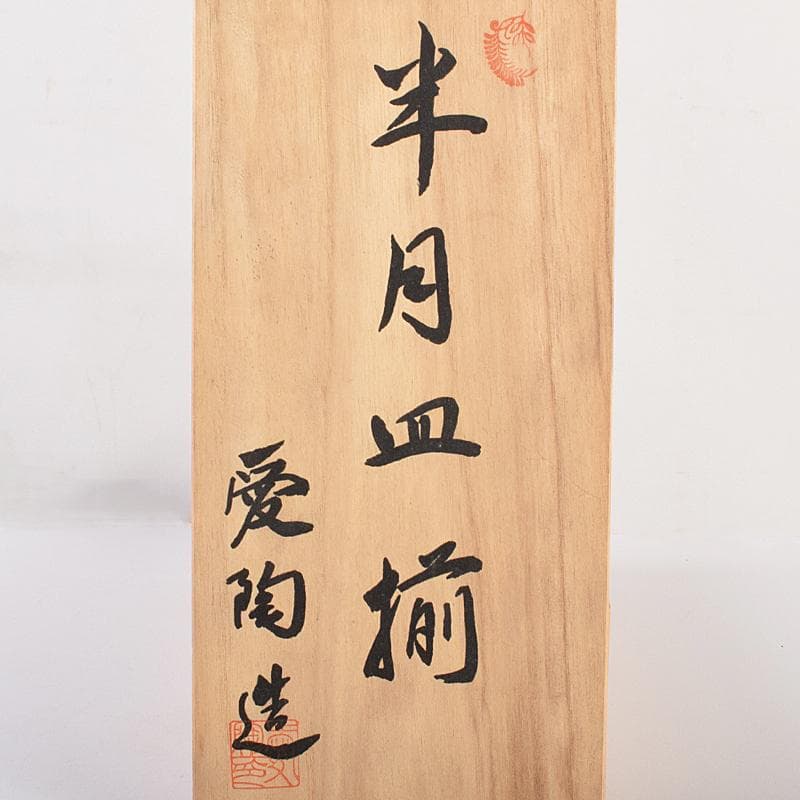 半月皿揃
愛陶造